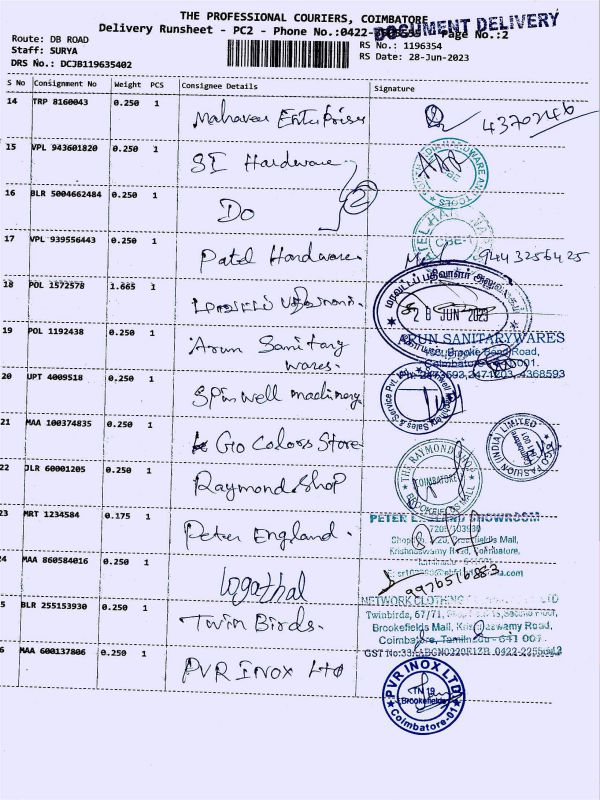 THE PROFESSIONAL COURIERS, COIMBATORE
DOCUMENT DELIVERY
Delivery Runsheet - PC2 - Phone No.:0422- Page No.:2
Route: DB ROAD
RS No.: 1196354
Staff: SURYA
RS Date: 28-Jun-2023
DRS No.: DCJB119635402
S No Consignment No Weight PCS Consignee Details Signature
14 TRP 8160043 0.250 1 Mahaveer Enterprises 4370246
15 VPL 943601820 0.250 1 SI Hardware
16 BLR 5004662484 0.250 1 Do 2
17 VPL 939556443 0.250 1 Patel Hardware. 9443256425
CBE-1
18 POL 1572578 1.665 1
மாவட்டப் பதிவாளர் அலுவலகம்
28 JUN 2023
19 POL 1192438 0.250 1 Arun Sanitary wares.
ARUN SANITARYWARES
Road,
Coimbatore 001.
4368593
20 UPT 4009518 0.250 1 Spinwell machinery
Sales & Service Pvt.
21 MAA 100374835 0.250 1 Go Colors Store
GO FASHION (INDIA) LIMITED
Coimbatore
641 001
22 JLR 60001205 0.250 1 Raymond Shop
THE RAYMOND SHOP
COIMBATORE
BROOKEFIELDS MALL
23 MRT 1234584 0.175 1 Peter England.
PETER ENGLAND SHOWROOM
Krishnaswamy Road, Coimbatore,
24 MAA 860584016 0.250 1 Logathal
9976516883
25 BLR 255153930 0.250 1 Twin Birds.
NETWORK CLOTHING LTD
Twinbirds, 67/71,
Brookefields Mall, Krishnaswamy Road,
Coimbatore, Tamilnadu - 641 001.
26 MAA 600137806 0.250 1 PVR INOX Ltd
PVR INOX LTD
TN 19
Brookefields
Coimbatore-01